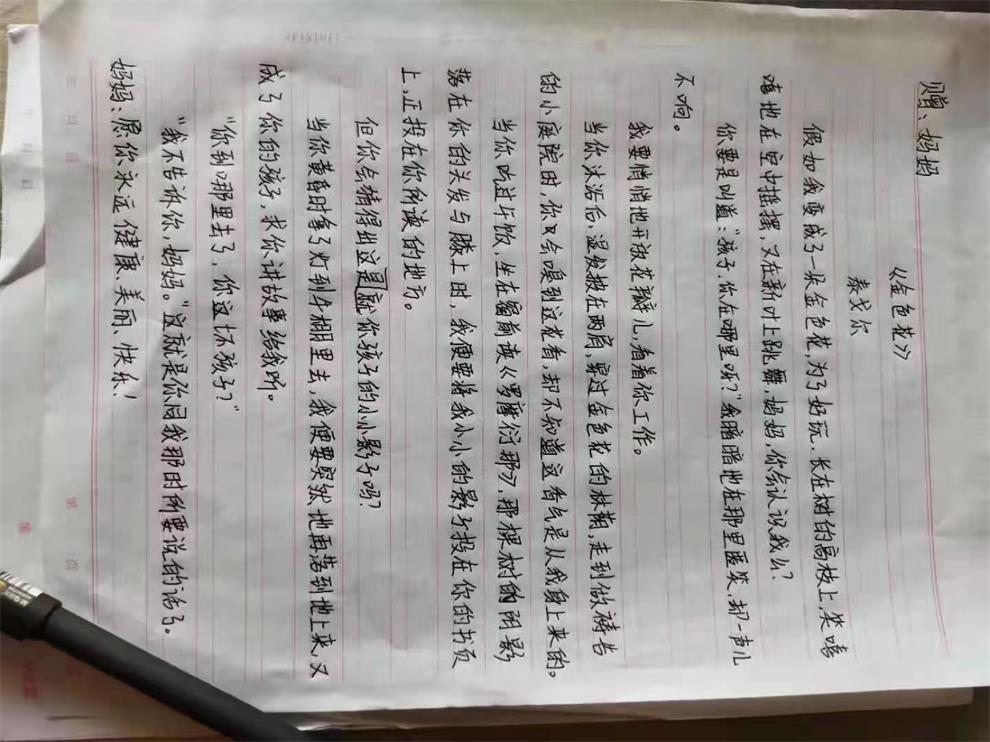 赠：妈妈
《金色花》
泰戈尔
假如我变成了一朵金色花，为了好玩，长在树的高枝上，笑嘻
嘻地在空中摇摆，又在新叶上跳舞，妈妈，你会认识我么？
你要是叫道：“孩子，你在哪里呀？”我暗暗地在那里匿笑，却一声儿
不响。
我要悄悄地开放花瓣儿，看着你工作。
当你沐浴后，湿发披在两肩，穿过金色花的林荫，走到做祷告
的小庭院时，你只会嗅到这花香，却不知道这香气是从我身上来的。
当你吃过午饭，坐在窗前读《罗摩衍那》，那棵树的阴影
落在你的头发与膝上时，我便要将我小小的影子投在你的书页
上，正投在你所读的地方。
但你会猜得出这是就你孩子的小小影子吗？
当你黄昏时拿了灯到牛棚里去，我便要突然地再落到地上来，又
成了你的孩子，求你讲故事给我听。
“你到哪里去了，你这坏孩子？”
“我不告诉你，妈妈。”这就是你同我那时所要说的话了。
妈妈：愿你永远健康、美丽、快乐！